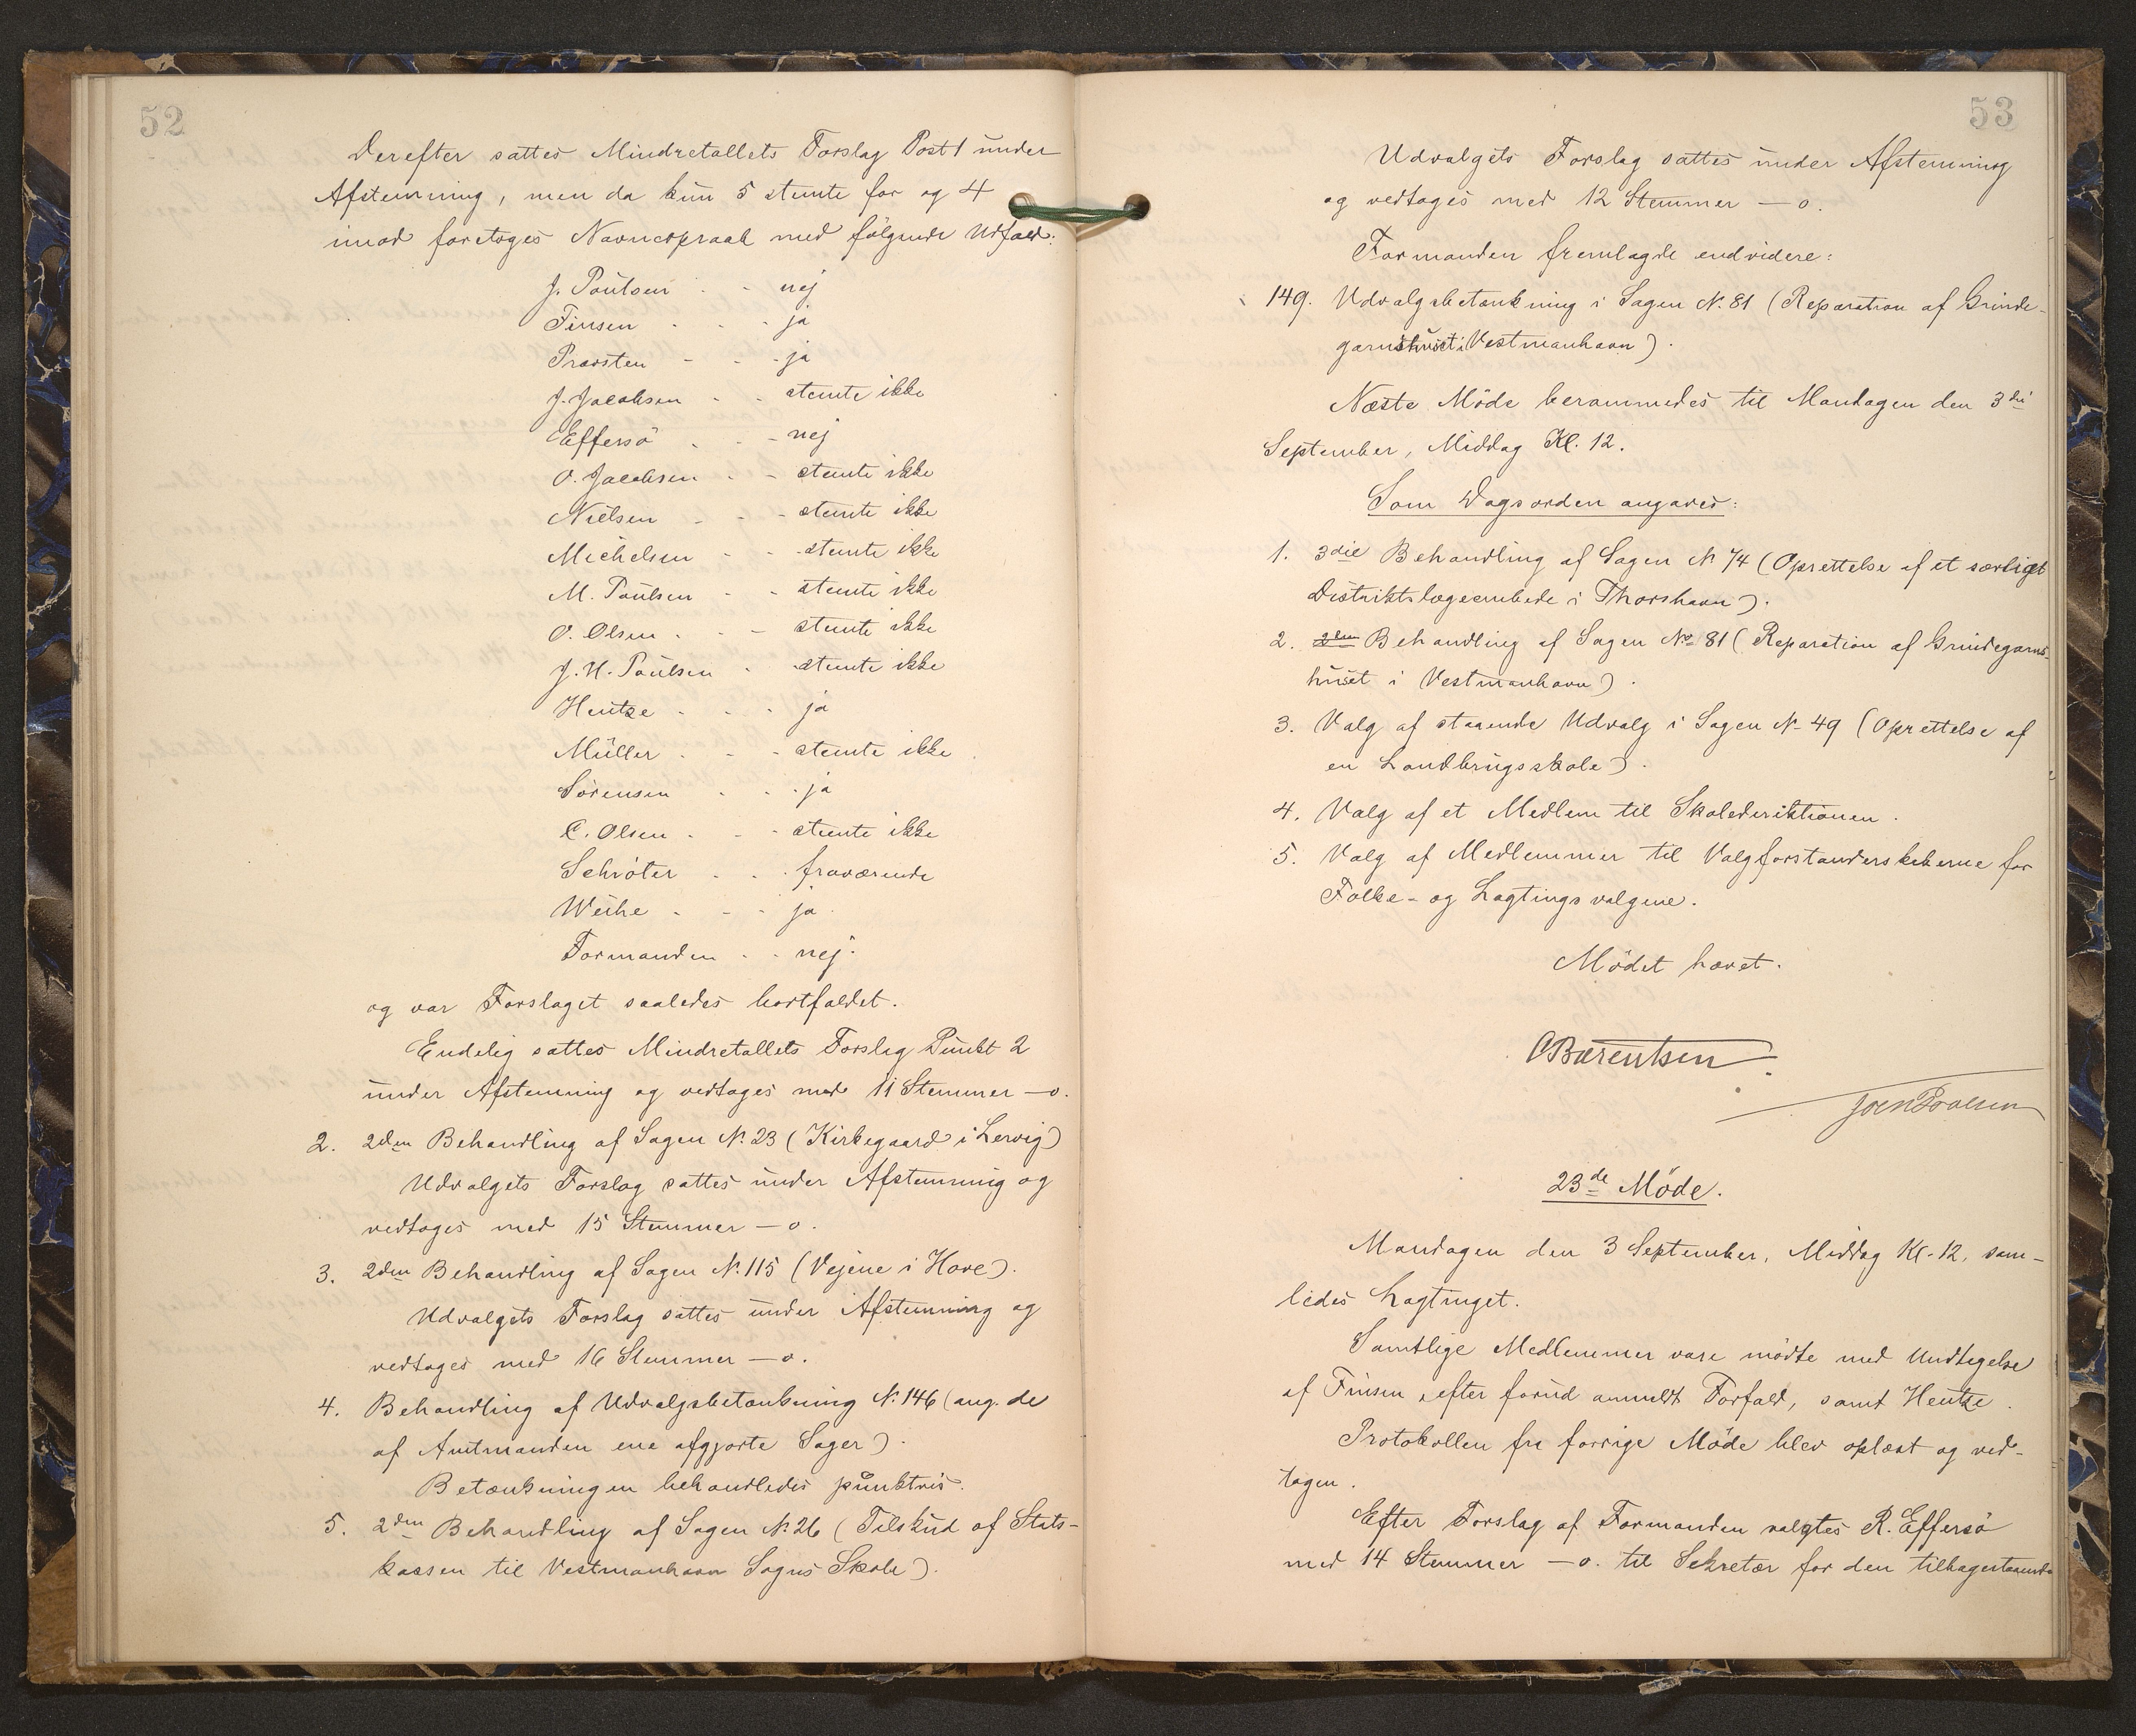 52
Derefter sattes Mindretallets Forslag Post 1 under
Afstemning, men da kun 5 stemte for og 4
imod foretoges Navneopraab med følgende Udfald:
J. Poulsen - - nej
Finsen - - - ja
Præsten - - - ja
J. Jacobsen - - stemte ikke
Effersö - - - nej
O. Jacobsen - - stemte ikke
Nielsen - - - stemte ikke
Michelsen - - stemte ikke
M. Poulsen - - stemte ikke
O. Olsen - - - stemte ikke
J. H. Poulsen - stemte ikke
Hentze - - - ja
Müller - - - stemte ikke
Sørensen - - - ja
C. Olsen - - - stemte ikke
Schröter - - - fraværende
Weihe - - - ja
Formanden - - nej.
og var Forslaget saaledes bortfaldet.
Endelig sattes Mindretallets Forslag Punkt 2
under Afstemning og vedtoges med 11 Stemmer — o.
2. 2den Behandling af Sagen N. 23 (Kirkegaard i Lervig)
Udvalgets Forslag sattes under Afstemning og
vedtoges med 15 Stemmer — o.
3. 2den Behandling af Sagen N. 115 (Vejene i Hove).
Udvalgets Forslag sattes under Afstemning og
vedtoges med 16 Stemmer — o.
4. Behandling af Udvalgsbetænkning N. 146 (ang. de
af Amtmanden ene afgjorte Sager).
Betænkningen behandledes punktvis.
5. 2den Behandling af Sagen N. 26 (Tilskud af Stats-
kassen til Vestmanhavn Sogns Skole).
53
Udvalgets Forslag sattes under Afstemning
og vedtoges med 12 Stemmer — o.
Formanden fremlagde endvidere:
149. Udvalgsbetænkning i Sagen N. 81 (Reparation af Grinde-
garnshuset i Vestmanhavn).
Næste Möde berammedes til Mandagen den 3die
September, Middag Kl. 12.
Som Dagsorden angaves:
1. 3die Behandling af Sagen N 74 (Oprettelse af et særligt
Distriktslægeembede i Thorshavn).
2. 2den Behandling af Sagen No 81 (Reparation af Grindegarns-
huset i Vestmanhavn).
3. Valg af staaende Udvalg i Sagen N. 49 (Oprettelse af
en Landbrugsskole).
4. Valg af et Medlem til Skolederiktionen.
5. Valg af Medlemmer til Valgforstanderskeberne for
Folke- og Lagtingsvalgene.
Mödet hævet.
CBærentsen
Joen Poulsen
23de Möde.
Mandagen den 3 September, Middag Kl. 12, sam-
ledes Lagtinget.
Samtlige Medlemmer vare mödte med Undtagelse
af Finsen efter forud anmeldt Forfald, samt Hentze.
Protokollen fra forrige Möde blev oplæst og ved-
tagen.
Efter Forslag af Formanden valgtes R. Effersö
med 14 Stemmer — o. til Sekretær for den tilbagestaaende